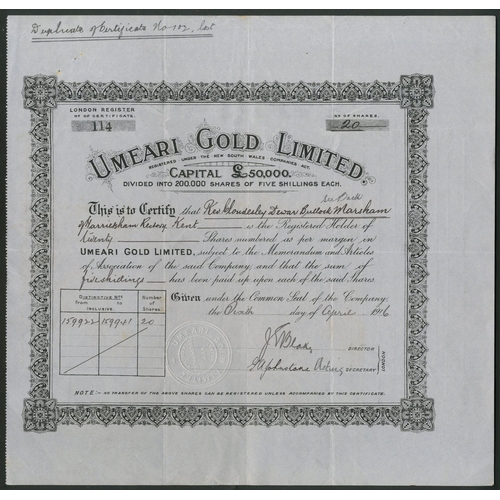 Duplicate of Certificate No 102, lost
LONDON REGISTER
Nº OF CERTIFICATE.
114
Nº OF SHARES.
20
UMEARI GOLD LIMITED.
REGISTERED UNDER THE NEW SOUTH WALES COMPANIES ACT.
CAPITAL £50,000.
DIVIDED INTO 200,000 SHARES OF FIVE SHILLINGS EACH.
This is to Certify that Rev Cloudesley Dewar Bullock Marsham
of Harrietsham Rectory Kent is the Registered Holder of
Twenty Shares numbered as per margin in
UMEARI GOLD LIMITED, subject to the Memorandum and Articles
of Association of the said Company and that the sum of
five shillings has been paid up upon each of the said Shares.
DISTINCTIVE NOS
from to
INCLUSIVE.
Number of Shares
159922 159941 20
Given under the Common Seal of the Company
the Sixth day of April 1906
DIRECTOR
Johnstone Acting SECRETARY
LONDON
NOTE:- NO TRANSFER OF THE ABOVE SHARES CAN BE REGISTERED UNLESS ACCOMPANIED BY THIS CERTIFICATE.